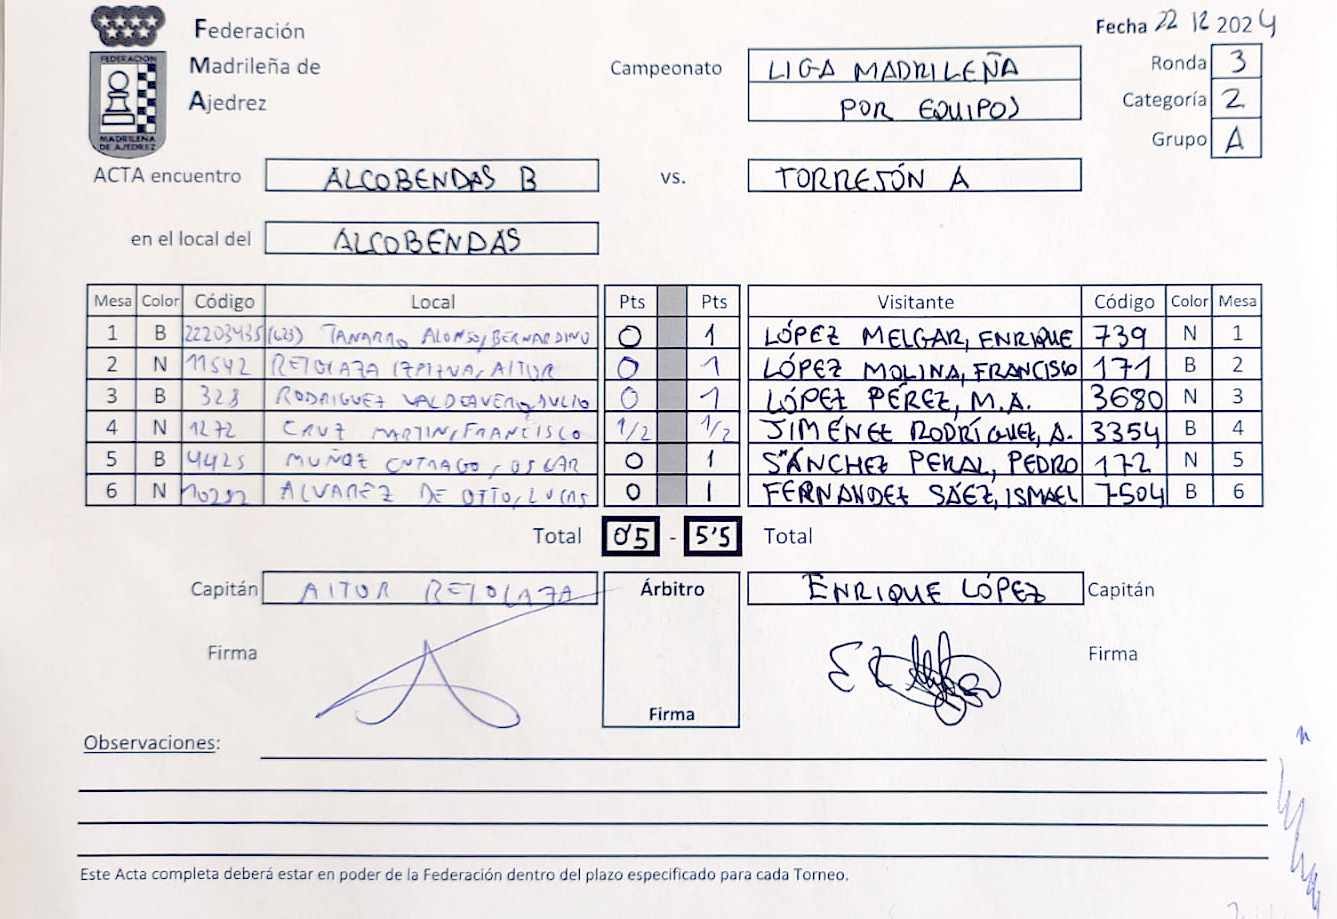 Federación
Madrileña de
Ajedrez
FEDERACION
MADRILEÑA
DE AJEDREZ
Fecha 22 12 2024
Campeonato LIGA MADRILEÑA
POR EQUIPOS
Ronda 3
Categoría 2
Grupo A
ACTA encuentro ALCOBENDAS B vs. TORREJÓN A
en el local del ALCOBENDAS
Mesa Color Código Local Pts Pts Visitante Código Color Mesa
1 B 22203435 (623) TANARRO ALONSO, BERNARDINO 0 1 LÓPEZ MELGAR, ENRIQUE 739 N 1
2 N 11542 RETOLAZA IZPIZUA, AITOR 0 1 LÓPEZ MOLINA, FRANCISCO 171 B 2
3 B 323 RODRIGUEZ VALDEAVERO, JULIO 0 1 LÓPEZ PÉREZ, M.A. 3680 N 3
4 N 1272 CRUZ MARTIN, FRANCISCO 1/2 1/2 JIMÉNEZ RODRÍGUEZ, A. 3354 B 4
5 B 4425 MUÑOZ OSCAR 0 1 SÁNCHEZ PERAL, PEDRO 172 N 5
6 N 10292 ALVAREZ DE OTTO, LUCAS 0 1 FERNANDEZ SÁEZ, ISMAEL 7504 B 6
Total 0'5 - 5'5 Total
Capitán AITOR RETOLAZA Árbitro ENRIQUE LÓPEZ Capitán
Firma Firma
Firma
Observaciones:
Este Acta completa deberá estar en poder de la Federación dentro del plazo especificado para cada Torneo.